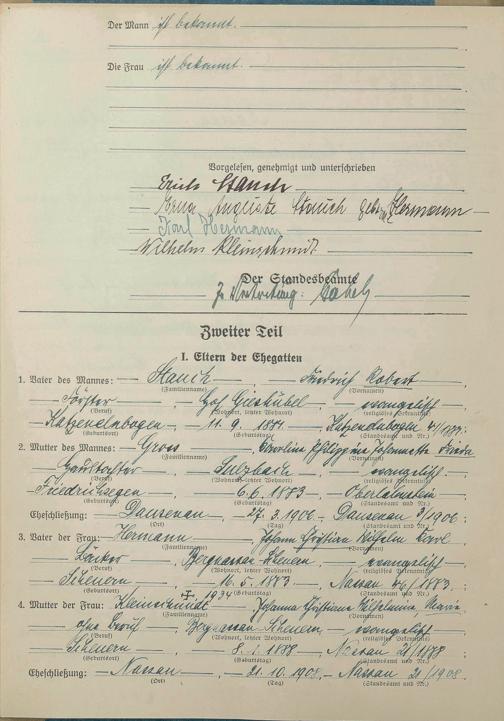 Der Mann ist bekannt.
Die Frau ist bekannt.
Vorgelesen, genehmigt und unterschrieben
Erich Stauch
Erna Auguste Stauch geb. Hermann
Karl Hermann
Wilhelm Kleinschmidt
Der Standesbeamte
In Vertretung: Gabel
Zweiter Teil
I. Eltern der Ehegatten
1. Vater des Mannes: Stauch Friedrich Robert
(Familienname) (Vornamen)
Förster Hof Gieshübel evangelisch
(Beruf) (Wohnort, letzter Wohnort) (religiöses Bekenntnis)
Katzenelnbogen 11. 9. Katzenelnbogen
(Geburtsort) (Geburtstag) (Standesamt und Nr.)
2. Mutter des Mannes: Gross Karoline Philippine Johannette Frieda
(Familienname) (Vornamen)
Sulzbach evangelisch
(Beruf) (Wohnort, letzter Wohnort) (religiöses Bekenntnis)
Friedrichsegen 6. 6. 1883 Oberlahnstein
(Geburtsort) (Geburtstag) (Standesamt und Nr.)
Eheschließung: Dausenau 27. 3. 1906 Dausenau 3/1906
(Ort) (Tag) (Standesamt und Nr.)
3. Vater der Frau: Hermann Johann Christian Wilhelm Karl
(Familienname) (Vornamen)
Bäcker Bergnassau-Scheuern evangelisch
(Beruf) (Wohnort, letzter Wohnort) (religiöses Bekenntnis)
Scheuern 16. 5. 1883 Nassau 46/1883
(Geburtsort) (Geburtstag) (Standesamt und Nr.)
1934
4. Mutter der Frau: Kleinschmidt Johanna Christiane Wilhelmine Marie
(Familienname) (Vornamen)
ohne Beruf Bergnassau-Scheuern evangelisch
(Beruf) (Wohnort, letzter Wohnort) (religiöses Bekenntnis)
Scheuern 8. 1. 1888 Nassau 21/1888
(Geburtsort) (Geburtstag) (Standesamt und Nr.)
Eheschließung: Nassau 31. 10. 1908 Nassau 21/1908
(Ort) (Tag) (Standesamt und Nr.)